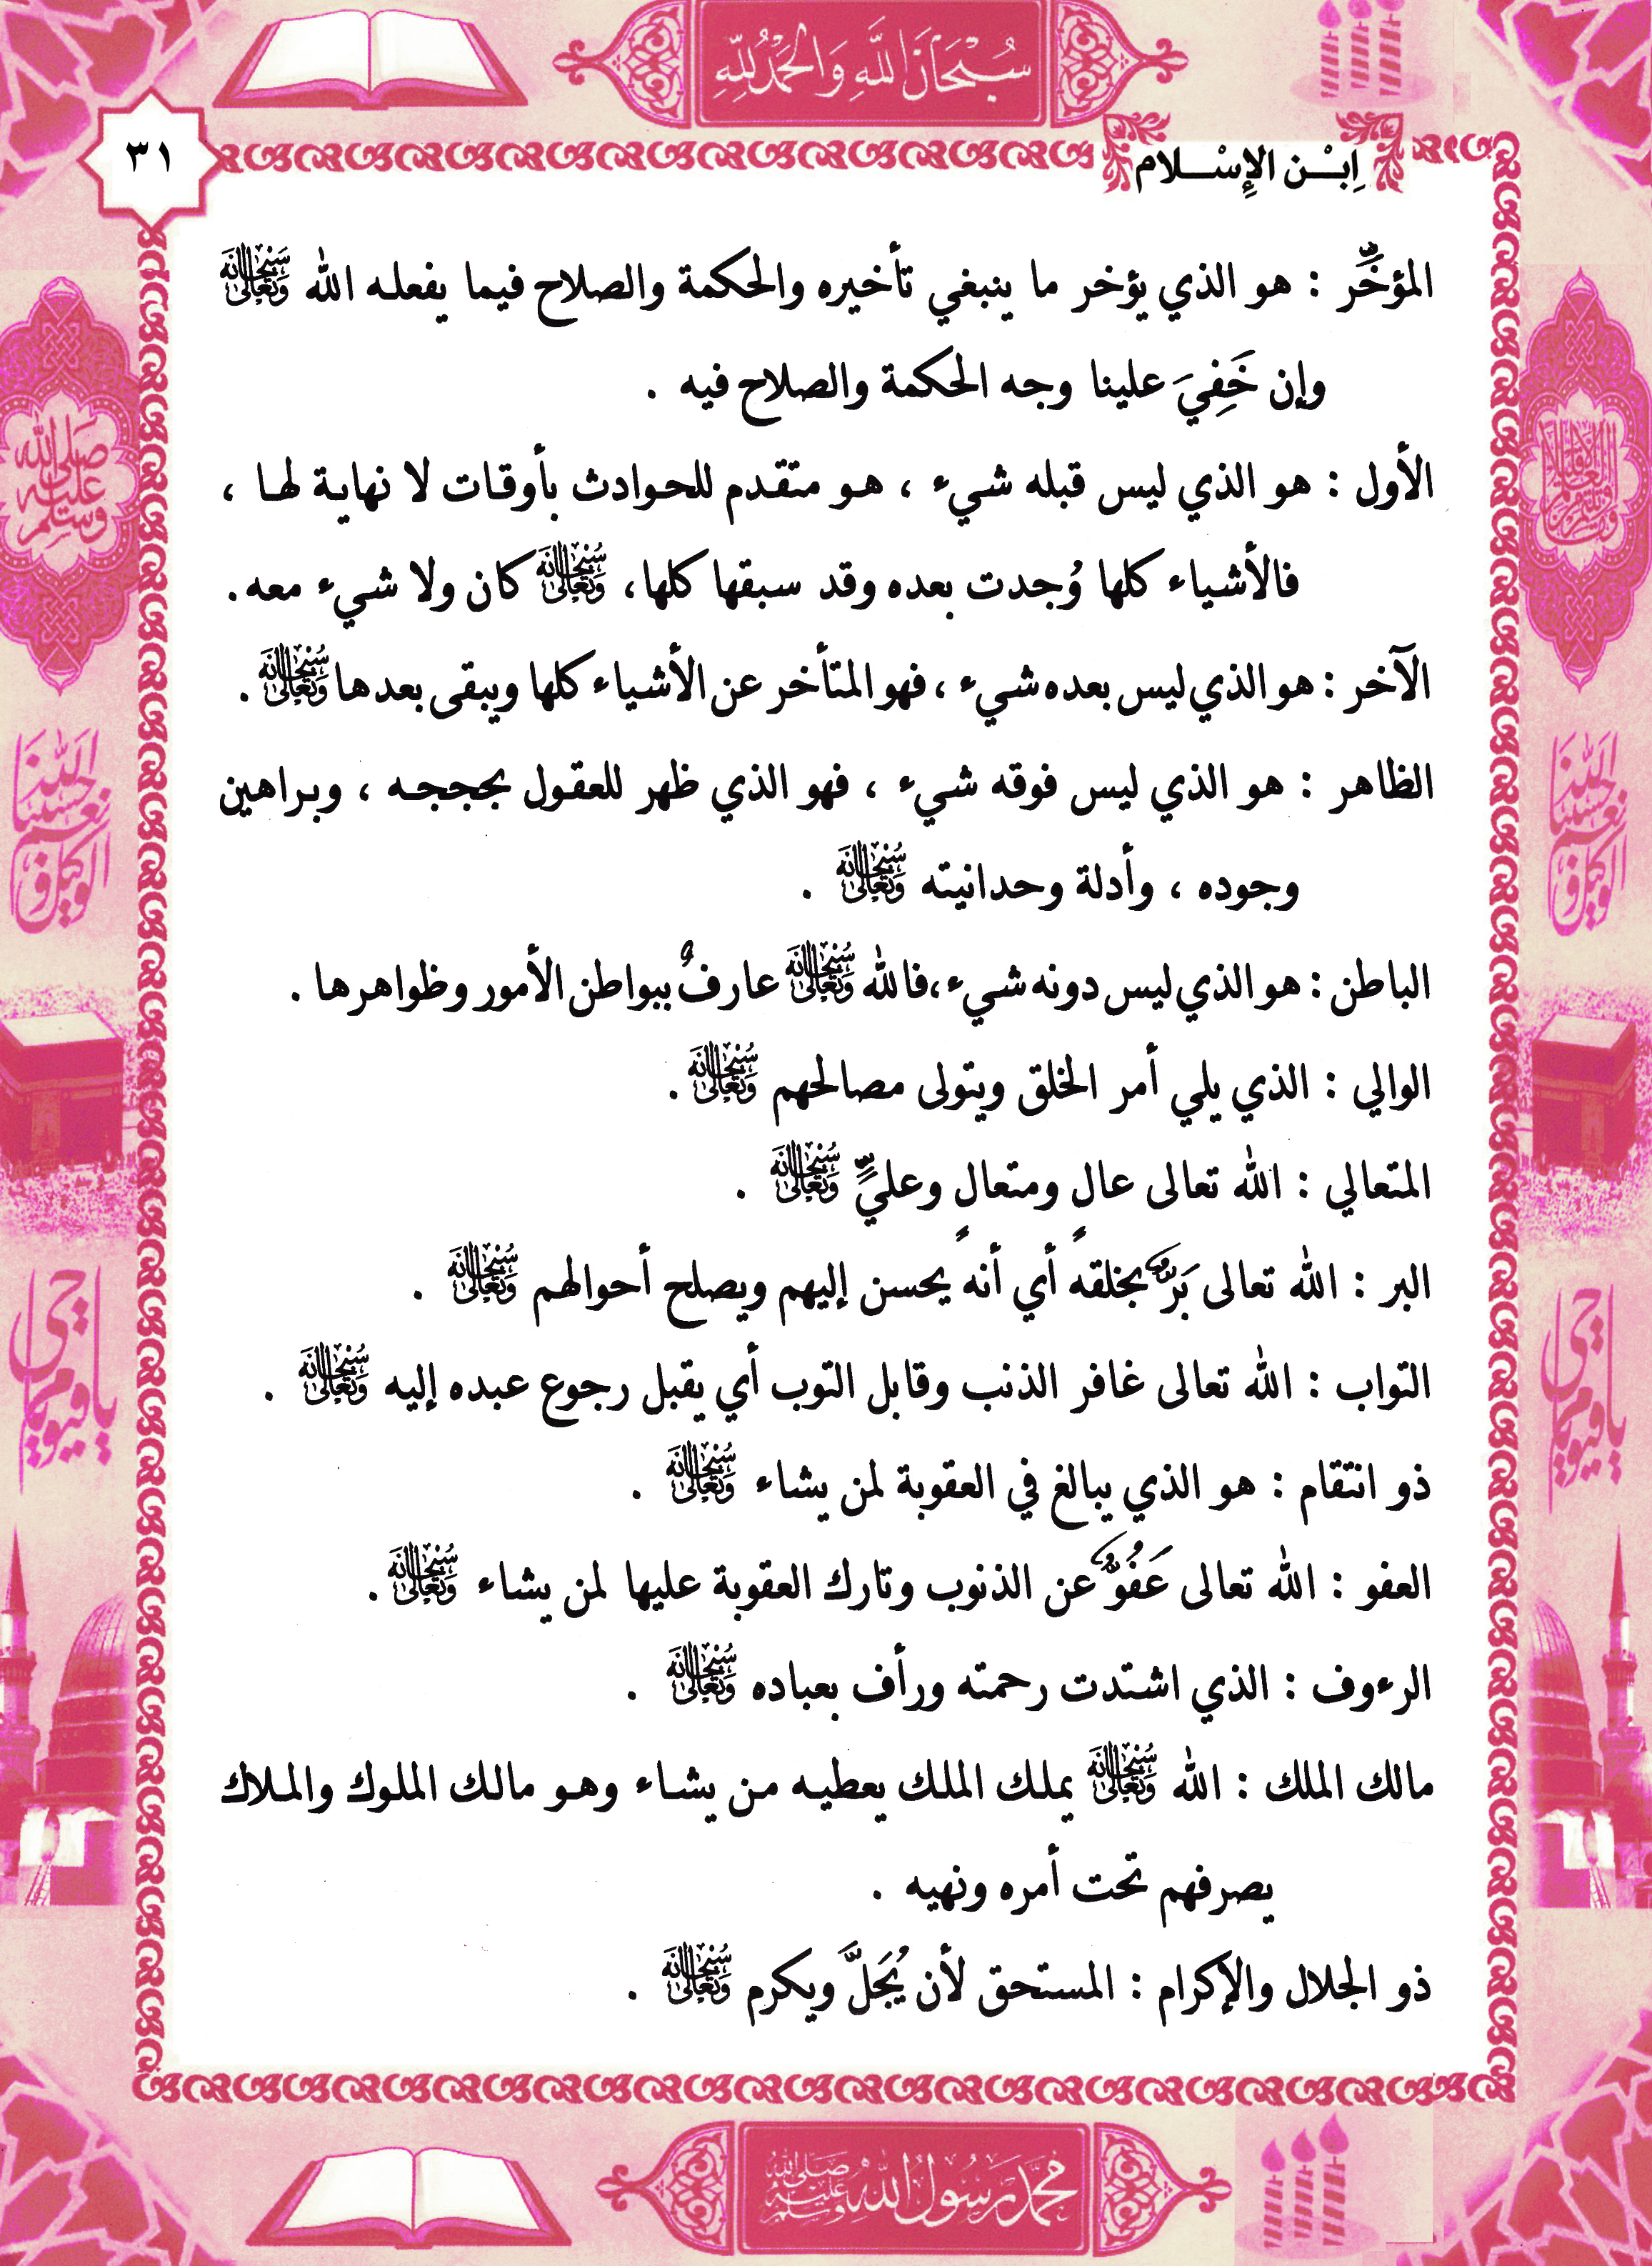 سُبْحَانَ اللَّهِ وَالْحَمْدُ لِلَّهِ
٣١
اِبْن الإِسْلام
المؤخِّر : هو الذي يؤخر ما ينبغي تأخيره والحكمة والصلاح فيما يفعله الله سُبْحَانَهُ وَتَعَالَىٰ
وإن خَفِيَ علينا وجه الحكمة والصلاح فيه .
الأول : هو الذي ليس قبله شيء ، هو متقدم للحوادث بأوقات لا نهاية لها ،
فالأشياء كلها وُجدت بعده وقد سبقها كلها، سُبْحَانَهُ وَتَعَالَىٰ كان ولا شيء معه .
الآخر : هو الذي ليس بعده شيء ، فهو المتأخر عن الأشياء كلها ويبقى بعدها سُبْحَانَهُ وَتَعَالَىٰ .
الظاهر : هو الذي ليس فوقه شيء ، فهو الذي ظهر للعقول بحججه ، وبراهين
وجوده ، وأدلة وحدانيته سُبْحَانَهُ وَتَعَالَىٰ .
الباطن : هو الذي ليس دونه شيء ،فالله سُبْحَانَهُ وَتَعَالَىٰ عارفٌ ببواطن الأمور وظواهرها .
الوالي : الذي يلي أمر الخلق ويتولى مصالحهم سُبْحَانَهُ وَتَعَالَىٰ .
المتعالي : الله تعالى عالٍ ومتعالٍ وعليٌّ سُبْحَانَهُ وَتَعَالَىٰ .
البر : الله تعالى بَرٌّ بخلقه أي أنه يحسن إليهم ويصلح أحوالهم سُبْحَانَهُ وَتَعَالَىٰ .
التواب : الله تعالى غافر الذنب وقابل التوب أي يقبل رجوع عبده إليه سُبْحَانَهُ وَتَعَالَىٰ .
ذو انتقام : هو الذي يبالغ في العقوبة لمن يشاء سُبْحَانَهُ وَتَعَالَىٰ .
العفو : الله تعالى عَفُوٌّ عن الذنوب وتارك العقوبة عليها لمن يشاء سُبْحَانَهُ وَتَعَالَىٰ .
الرءوف : الذي اشتدت رحمته ورأف بعباده سُبْحَانَهُ وَتَعَالَىٰ .
مالك الملك : الله سُبْحَانَهُ وَتَعَالَىٰ يملك الملك يعطيه من يشاء وهو مالك الملوك والملاك
يصرفهم تحت أمره ونهيه .
ذو الجلال والإكرام : المستحق لأن يُجَلَّ ويكرم سُبْحَانَهُ وَتَعَالَىٰ .
صلى الله عليه وسلم
حسبنا الله ونعم الوكيل
حسبنا الله ونعم الوكيل
يا حي يا قيوم
يا حي يا قيوم
محمد رسول الله صلى الله عليه وسلم